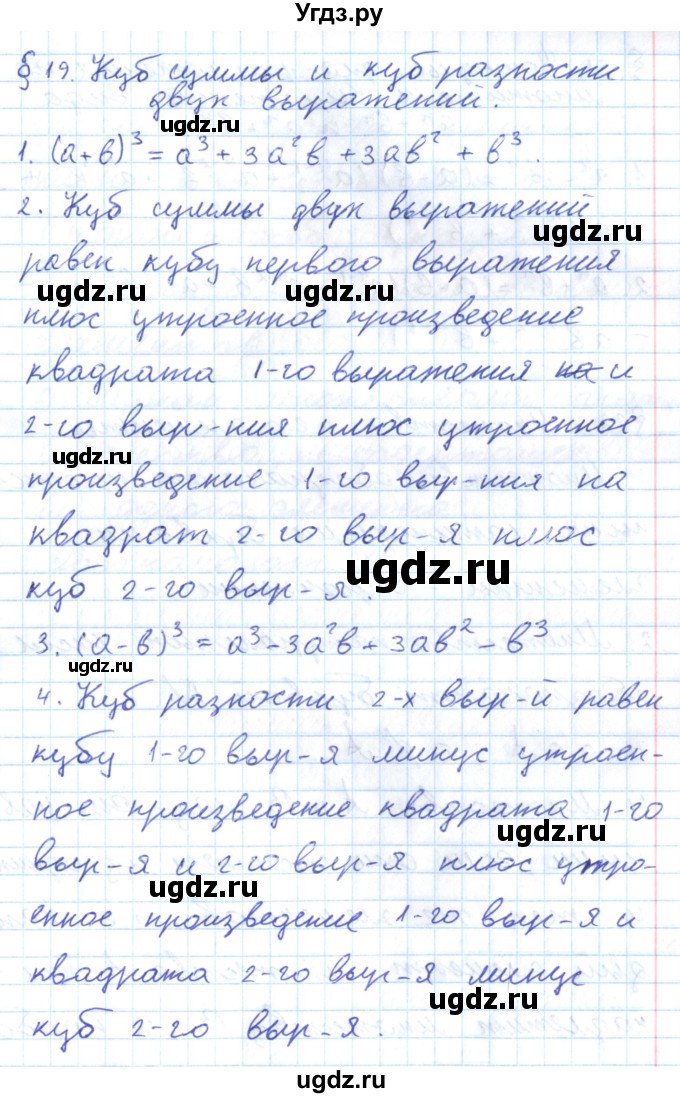 Угдз.ру
§ 19. Куб суммы и куб разности
двух выражений.
ugdz.ru
1. (a+b)³ = a³ + 3a²b + 3ab² + b³.
2. Куб суммы двух выражений
ugdz.ru
равен кубу первого выражения
ugdz.ru
ugdz.ru
плюс утроенное произведение
квадрата 1-го выражения на и
2-го выр-ния плюс утроенное
ugdz.ru
произведение 1-го выр-ния на
квадрат 2-го выр-я плюс
ugdz.ru
куб 2-го выр-я.
3. (a-b)³ = a³ - 3a²b + 3ab² - b³
4. Куб разности 2-х выр-й равен
кубу 1-го выр-я минус утроен-
ное произведение квадрата 1-го
ugdz.ru
выр-я и 2-го выр-я плюс утро-
ugdz.ru
енное произведение 1-го выр-я и
квадрата 2-го выр-я минус
ugdz.ru
куб 2-го выр-я.
ugdz.ru